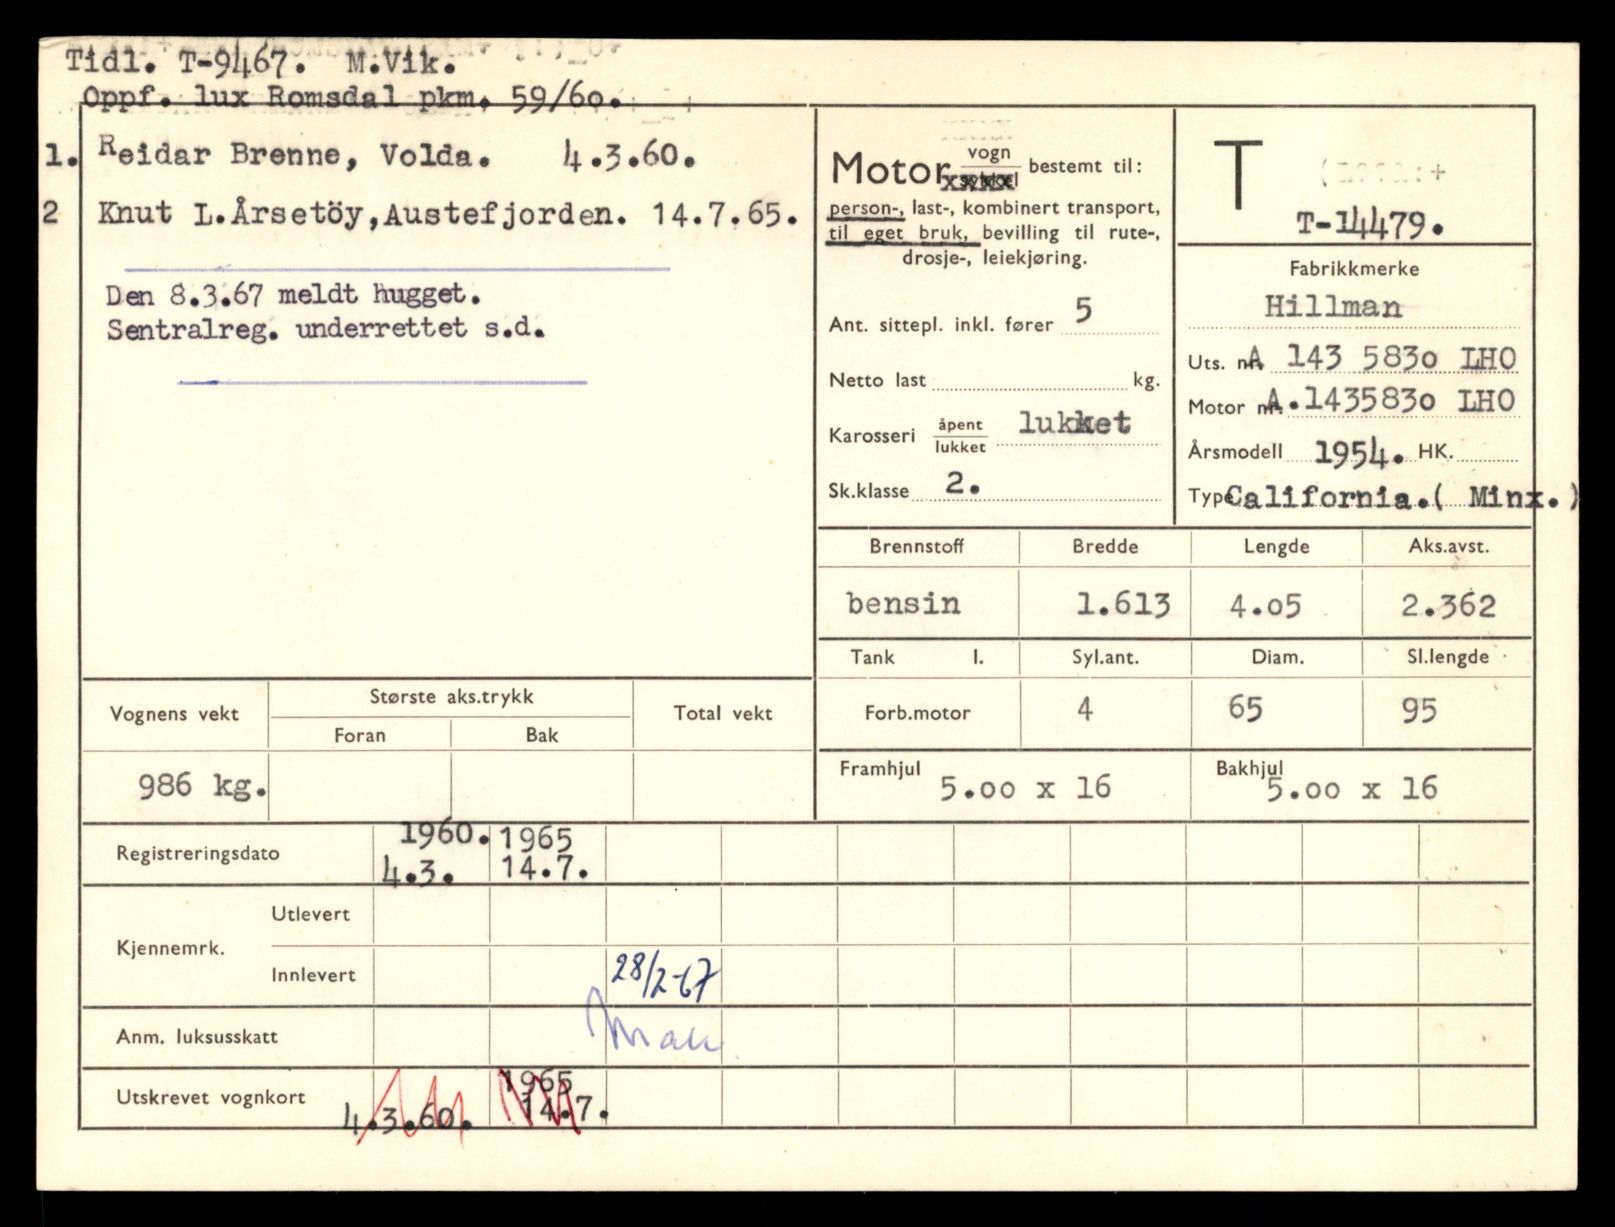 Tidl. T-9467. M.Vik.
Oppf. lux Romsdal pkm. 59/60.
1. Reidar Brenne, Volda. 4.3.60.
2 Knut L.Årsetöy,Austefjorden. 14.7.65.
Den 8.3.67 meldt hugget.
Sentralreg. underrettet s.d.
Motor vogn bestemt til:
person-, last-, kombinert transport,
til eget bruk, bevilling til rute-,
drosje-, leiekjøring.
Ant. sittepl. inkl. fører 5
Netto last kg.
Karosseri åpent lukket lukket
Sk.klasse 2.
T
T-14479.
Fabrikkmerke
Hillman
Uts. nr. A 143 5830 LHO
Motor nr. A.1435830 LHO
Årsmodell 1954. HK.
Type California.( Minx.)
Brennstoff Bredde Lengde Aks.avst.
bensin 1.613 4.05 2.362
Tank l. Syl.ant. Diam. Sl.lengde
Forb.motor 4 65 95
Framhjul 5.00 x 16 Bakhjul 5.00 x 16
Vognens vekt Største aks.trykk Total vekt
Foran Bak
986 kg.
Registreringsdato 1960. 4.3. 1965 14.7.
Kjennemrk. Utlevert
Innlevert 28/2-67
Anm. luksusskatt
Utskrevet vognkort 4.3.60. 1965 14.7.